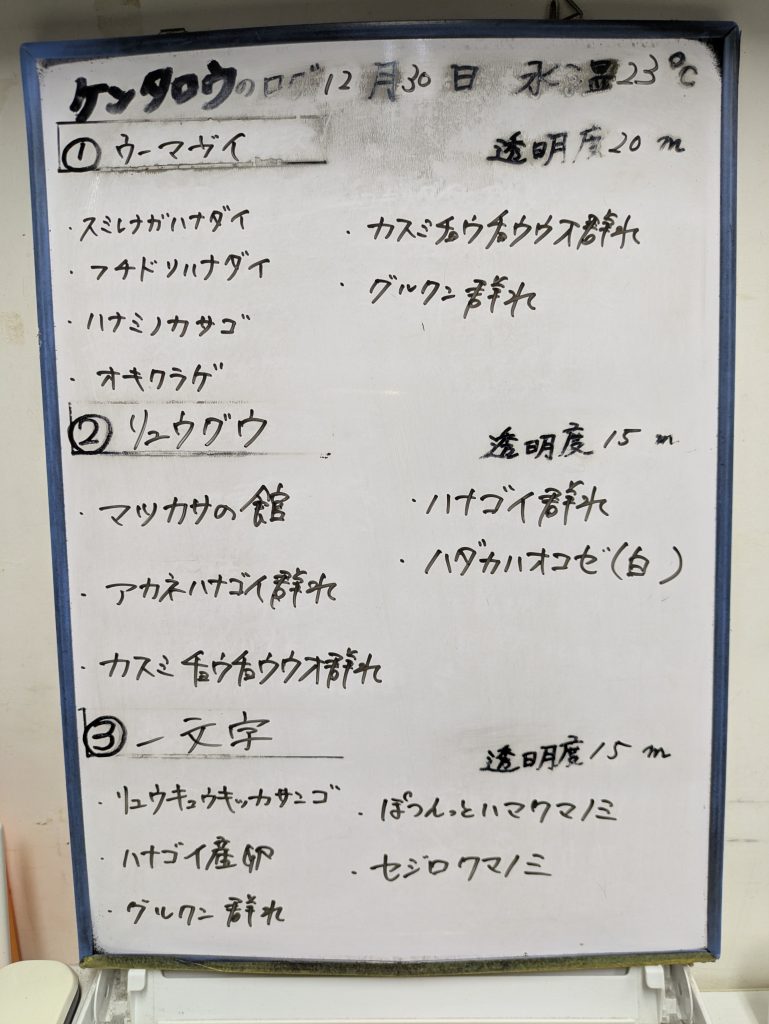 ケンタロウのログ 12月30日 水温23℃
① ウーマヴイ 透明度20m
・スミレナガハナダイ
・フチドリハナダイ
・ハナミノカサゴ
・オキクラゲ
・カスミチョウチョウウオ群れ
・グルクン群れ
② リュウグウ 透明度15m
・マツカサの館
・アカネハナゴイ群れ
・カスミチョウチョウウオ群れ
・ハナゴイ群れ
・ハダカハオコゼ(白)
③ 一文字 透明度15m
・リュウキュウキッカサンゴ
・ハナゴイ産卵
・グルクン群れ
・ぽつんっとハマクマノミ
・セジロクマノミ